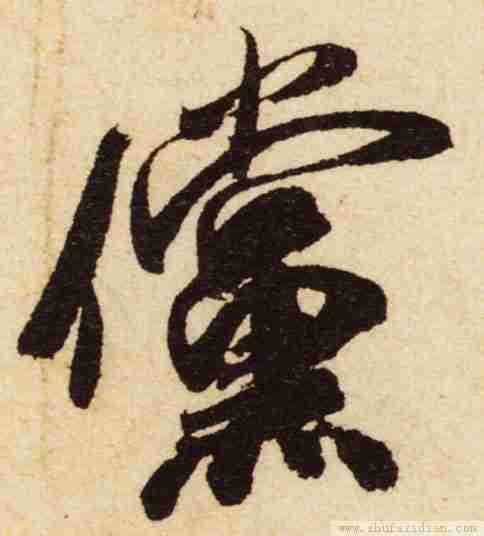 儻
www.shufazidian.com